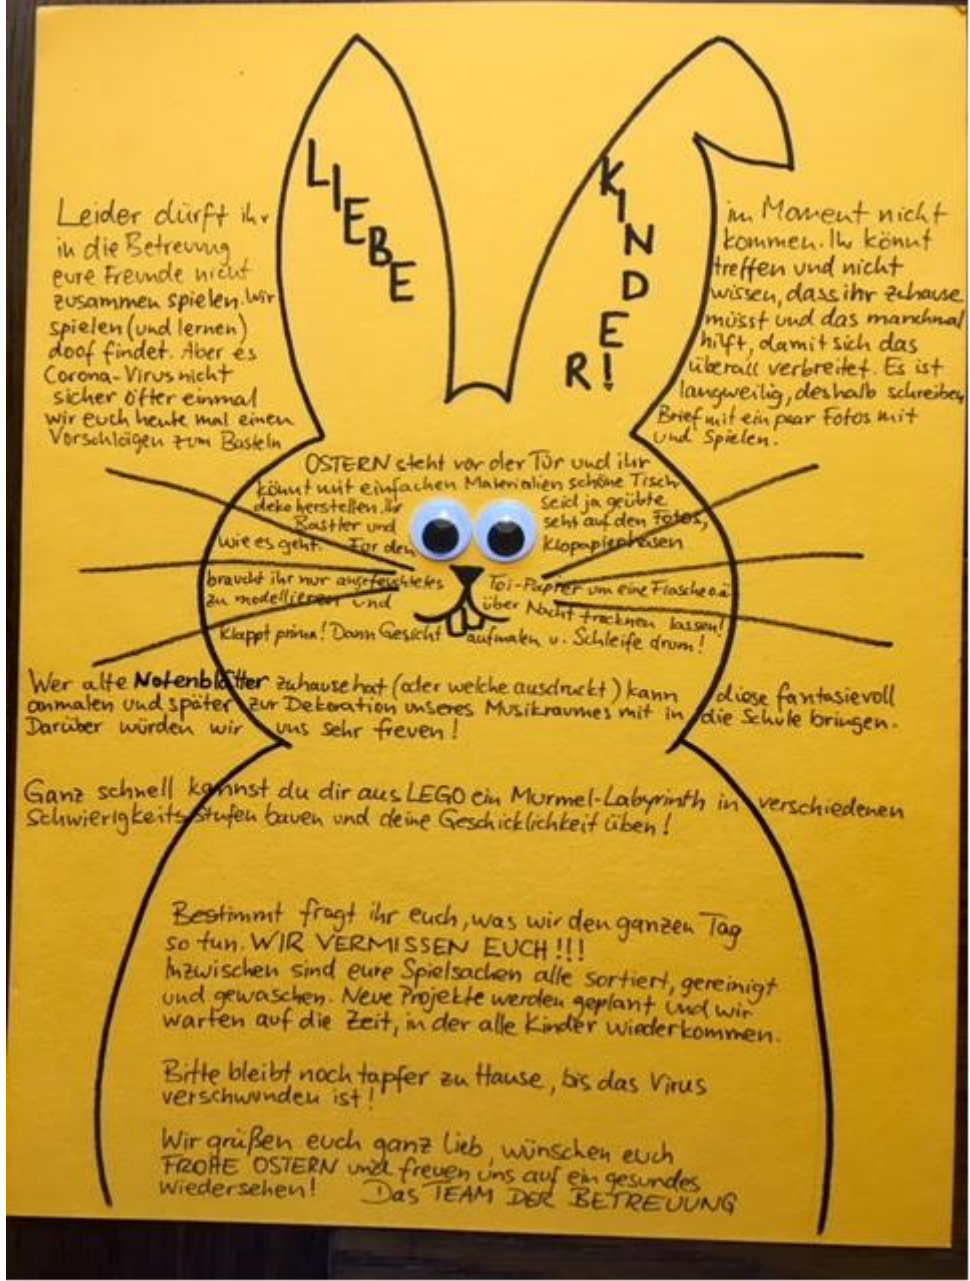 LIEBE KINDER!
Leider dürft ihr im Moment nicht
in die Betreuung kommen. Ihr könnt
eure Freunde nicht treffen und nicht
zusammen spielen. Wir wissen, dass ihr zuhause
spielen (und lernen) müsst und das manchmal
doof findet. Aber es hilft, damit sich das
Corona-Virus nicht überall verbreitet. Es ist
sicher öfter einmal langweilig, deshalb schreiben
wir euch heute mal einen Brief mit ein paar Fotos mit
Vorschlägen zum Basteln und Spielen.
OSTERN steht vor der Tür und ihr
könnt mit einfachen Materialien schöne Tisch-
deko herstellen. Ihr seid ja geübte
Bastler und seht auf den Fotos,
wie es geht. Für den Klopapierhasen
braucht ihr nur angefeuchtetes Toi-Papier um eine Flasche o.ä
zu modellieren und über Nacht trocknen lassen!
Klappt prima! Dann Gesicht aufmalen u. Schleife drum!
Wer alte Notenblätter zuhause hat (oder welche ausdruckt) kann diese fantasievoll
anmalen und später zur Dekoration unseres Musikraumes mit in die Schule bringen.
Darüber würden wir uns sehr freuen!
Ganz schnell kannst du dir aus LEGO ein Murmel-Labyrinth in verschiedenen
Schwierigkeitsstufen bauen und deine Geschicklichkeit üben!
Bestimmt fragt ihr euch, was wir den ganzen Tag
so tun. WIR VERMISSEN EUCH!!!
Inzwischen sind eure Spielsachen alle sortiert, gereinigt
und gewaschen. Neue Projekte werden geplant und wir
warten auf die Zeit, in der alle Kinder wiederkommen.
Bitte bleibt noch tapfer zu Hause, bis das Virus
verschwunden ist!
Wir grüßen euch ganz lieb, wünschen euch
FROHE OSTERN und freuen uns auf ein gesundes
Wiedersehen! Das TEAM DER BETREUUNG